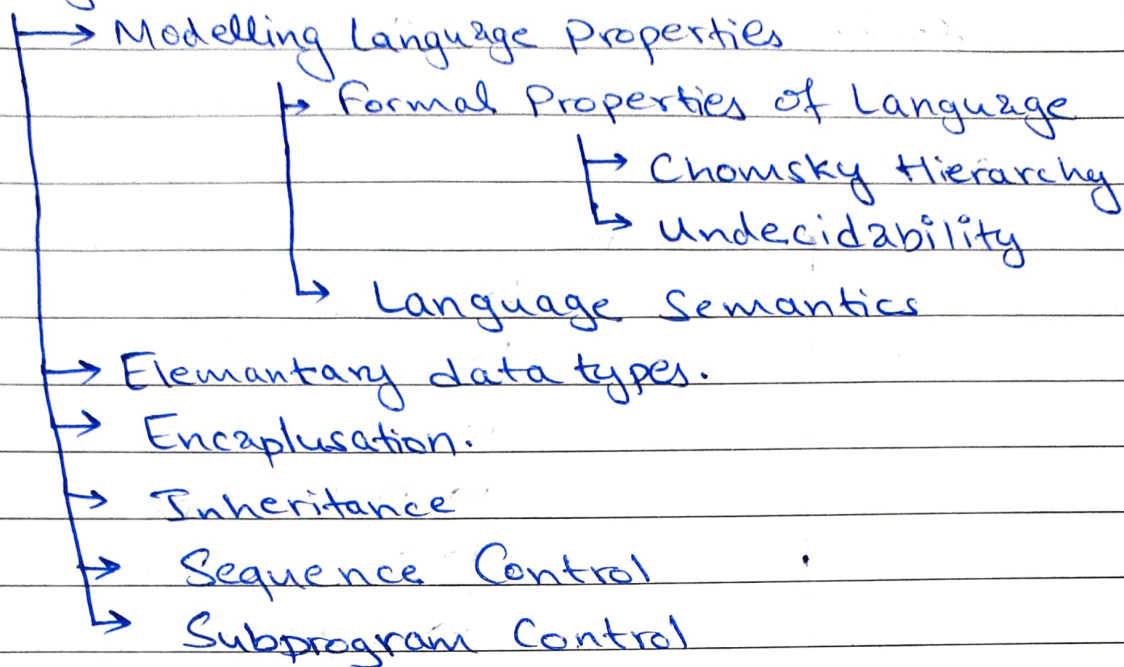 Modelling Language Properties
Formal Properties of Language
Chomsky Hierarchy
Undecidability
Language Semantics
Elemantary data types.
Encaplusation.
Inheritance
Sequence Control
Subprogram Control